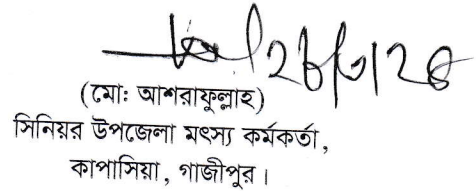 (মো: আশরাফুল্লাহ)
সিনিয়র উপজেলা মৎস্য কর্মকর্তা,
কাপাসিয়া, গাজীপুর।